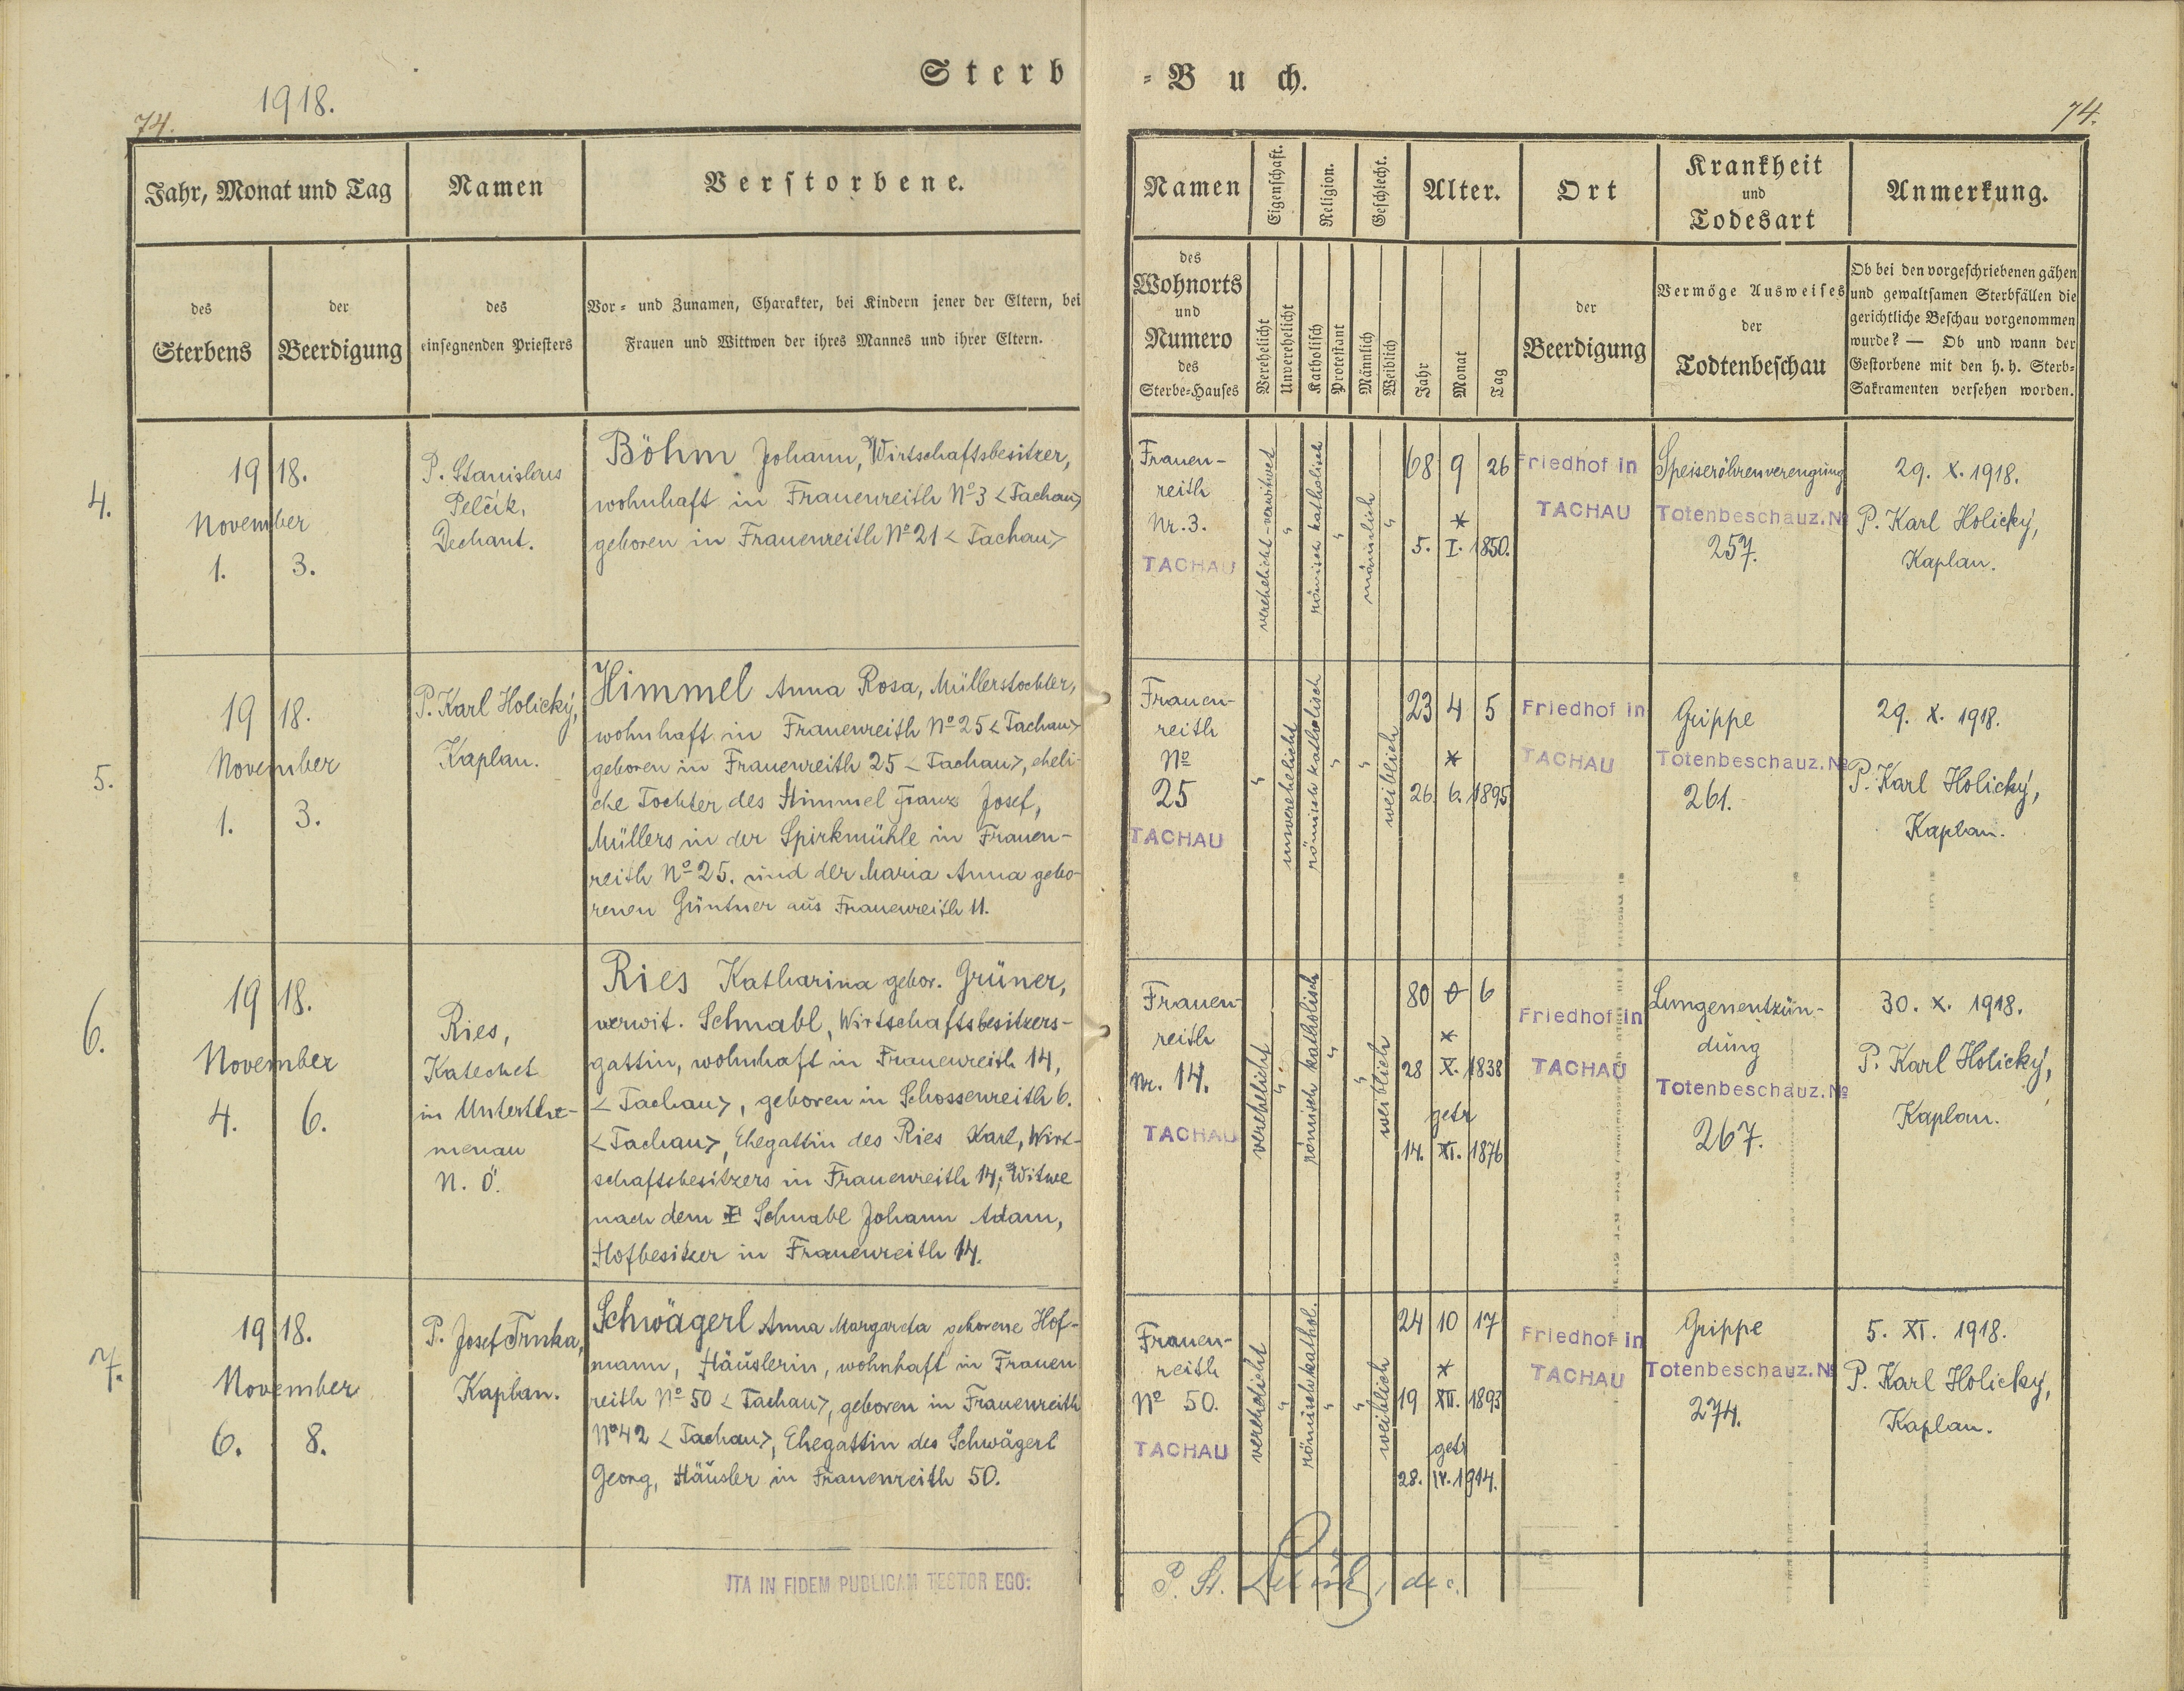 Sterb=Buch.
1918.
74.
74.
Jahr, Monat und Tag
Namen
Verstorbene.
Namen
Eigenschaft.
Religion.
Geschlecht.
Alter.
Ort
Krankheit
und
Todesart
Anmerkung.
des
Sterbens
der
Beerdigung
des
einsegnenden Priesters
Vor= und Zunamen, Charakter, bei Kindern jener der Eltern, bei
Frauen und Wittwen der ihres Mannes und ihrer Eltern.
des
Wohnorts
und
Numero
des
Sterbe=Hauses
Verehelicht
Unverehelicht
Katholisch
Protestant
Männlich
Weiblich
Jahr
Monat
Tag
der
Beerdigung
Vermöge Ausweises
der
Todtenbeschau
Ob bei den vorgeschriebenen gähen
und gewaltsamen Sterbfällen die
gerichtliche Beschau vorgenommen
wurde? — Ob und wann der
Gestorbene mit den h. h. Sterb=
Sakramenten versehen worden.
4.
1918.
November
1. 3.
P. Stanislaus
Pelčik,
Dechant.
Böhm Johann, Wirtschaftsbesitzer,
wohnhaft in Frauenreith Nº 3 <Tachau>
geboren in Frauenreith Nº 21 <Tachau>
Frauen-
reith
Nr. 3.
TACHAU
verehelicht-verwitwet
"
römisch katholisch
"
männlich
"
68 9 26
*
5. I. 1850.
Friedhof in
TACHAU
Speiseröhrenverengung
Totenbeschauz. Nº
257.
29. X. 1918.
P. Karl Holický,
Kaplan.
5.
1918.
November
1. 3.
P. Karl Holický,
Kaplan.
Himmel Anna Rosa, Müllerstochter,
wohnhaft in Frauenreith Nº 25 <Tachau>
geboren in Frauenreith 25 <Tachau>, eheli-
che Tochter des Himmel Franz Josef,
Müllers in der Spirkmühle in Frauen-
reith Nº 25. und der Maria Anna gebo-
renen Güntner aus Frauenreith 11.
Frauen-
reith
Nº
25
TACHAU
"
unverehelicht
römisch katholisch
"
"
weiblich
23 4 5
*
26. 6. 1895
Friedhof in
TACHAU
Grippe
Totenbeschauz. Nº
261.
29. X. 1918.
P. Karl Holický,
Kaplan.
6.
1918.
November
4. 6.
Ries,
Katechet
in Unterthe-
menau
N. Ö.
Ries Katharina gebor. Grüner,
verwit. Schnabl, Wirtschaftsbesitzers-
gattin, wohnhaft in Frauenreith 14,
<Tachau>, geboren in Schossenreith 6.
<Tachau>, Ehegattin des Ries Karl, Wirt-
schaftsbesitzers in Frauenreith 14; Witwe
nach dem Schnabl Johann Adam,
Hofbesitzer in Frauenreith 14.
Frauen-
reith
Nr. 14.
TACHAU
verehelicht
"
römisch katholisch
"
"
weiblich
80 0 6
*
28 X. 1838
getr
14. XI. 1876
Friedhof in
TACHAU
Lungenentzün-
dung
Totenbeschauz. Nº
267.
30. X. 1918.
P. Karl Holický,
Kaplan.
7.
1918.
November
6. 8.
P. Josef Trnka,
Kaplan.
Schwägerl Anna Margareta geborene Hof-
mann, Häuslerin, wohnhaft in Frauen
reith Nº 50 <Tachau>, geboren in Frauenreith
Nº 42 <Tachau>, Ehegattin des Schwägerl
Georg, Häusler in Frauenreith 50.
Frauen-
reith
Nº 50.
TACHAU
verehelicht
"
römisch kathol.
"
"
weiblich
24 10 17
*
19 XII. 1893
getr
28. IV. 1914.
Friedhof in
TACHAU
Grippe
Totenbeschauz. Nº
274.
5. XI. 1918.
P. Karl Holický,
Kaplan.
ITA IN FIDEM PUBLICAM TESTOR EGO:
P. St. Pelčik, dec.